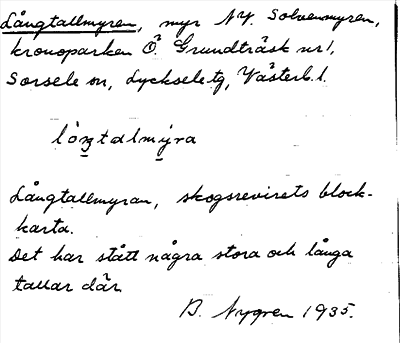 Långtallmyren, myr NV. Solvenmyren,
kronoparken Ö. Grundträsk nr 1,
Sorsele sn, Lycksele tg, Västerb. l.
lòŋtalmýra
Långtallmyran, skogsrevirets block-
karta.
Det har stått några stora och långa
tallar där
B. Nygren 1935.